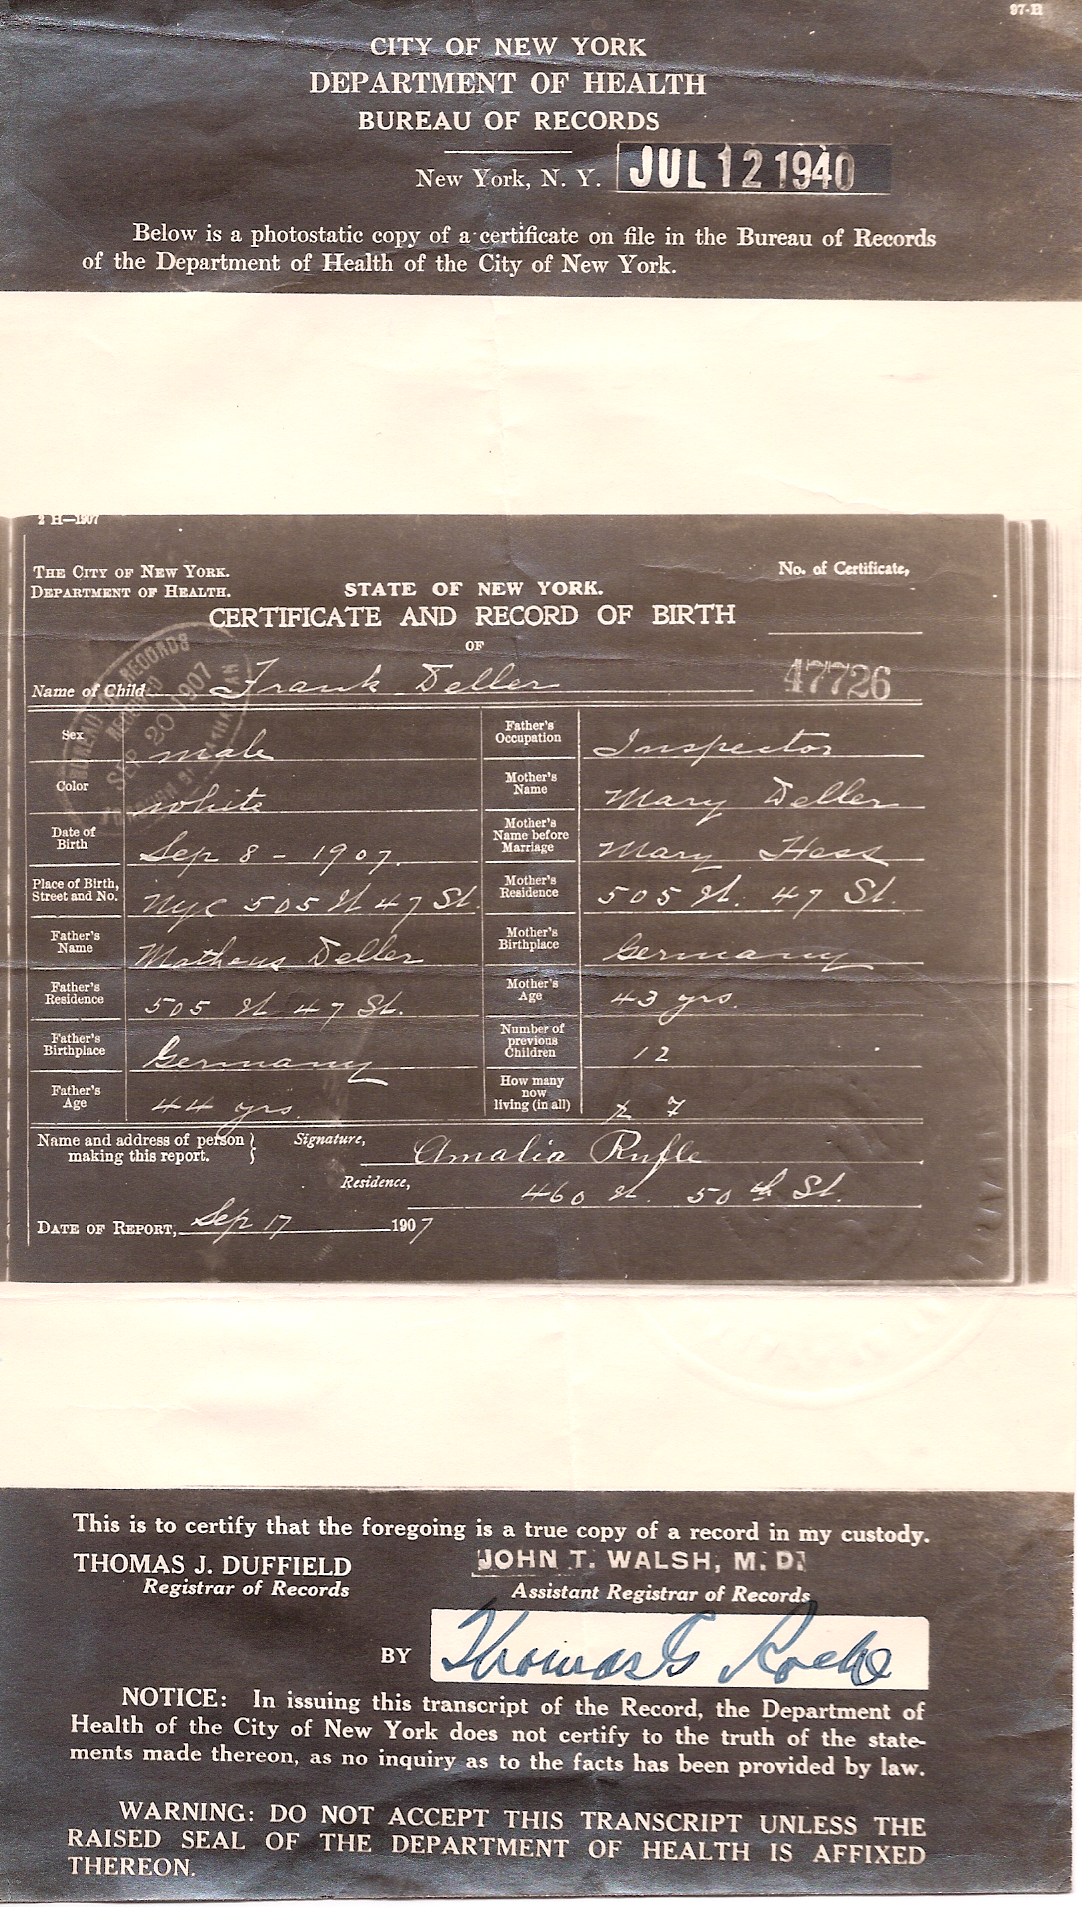 97-H
CITY OF NEW YORK
DEPARTMENT OF HEALTH
BUREAU OF RECORDS
New York, N. Y. JUL 12 1940
Below is a photostatic copy of a certificate on file in the Bureau of Records
of the Department of Health of the City of New York.
2 H—1907
THE CITY OF NEW YORK.
DEPARTMENT OF HEALTH.
No. of Certificate,
STATE OF NEW YORK.
CERTIFICATE AND RECORD OF BIRTH
OF
Name of Child Frank Deller
47726
BUREAU OF RECORDS
RECEIVED
SEP 20 1907
Sex male
Father's Occupation Inspector
Color white
Mother's Name Mary Deller
Date of Birth Sep 8 - 1907.
Mother's Name before Marriage Mary Hess
Place of Birth, Street and No. Nyc 505 W 47 St.
Mother's Residence 505 W. 47 St.
Father's Name Matheus Deller
Mother's Birthplace Germany
Father's Residence 505 W 47 St.
Mother's Age 43 yrs.
Father's Birthplace Germany
Number of previous Children 12
Father's Age 44 yrs.
How many now living (in all) 7
Name and address of person making this report.
Signature, Amalia Rufle
Residence, 460 W. 50th St.
DATE OF REPORT, Sep 17 1907
This is to certify that the foregoing is a true copy of a record in my custody.
THOMAS J. DUFFIELD
Registrar of Records
JOHN T. WALSH, M. D.
Assistant Registrar of Records
BY Thomas G Roche
NOTICE: In issuing this transcript of the Record, the Department of
Health of the City of New York does not certify to the truth of the state-
ments made thereon, as no inquiry as to the facts has been provided by law.
WARNING: DO NOT ACCEPT THIS TRANSCRIPT UNLESS THE
RAISED SEAL OF THE DEPARTMENT OF HEALTH IS AFFIXED
THEREON.